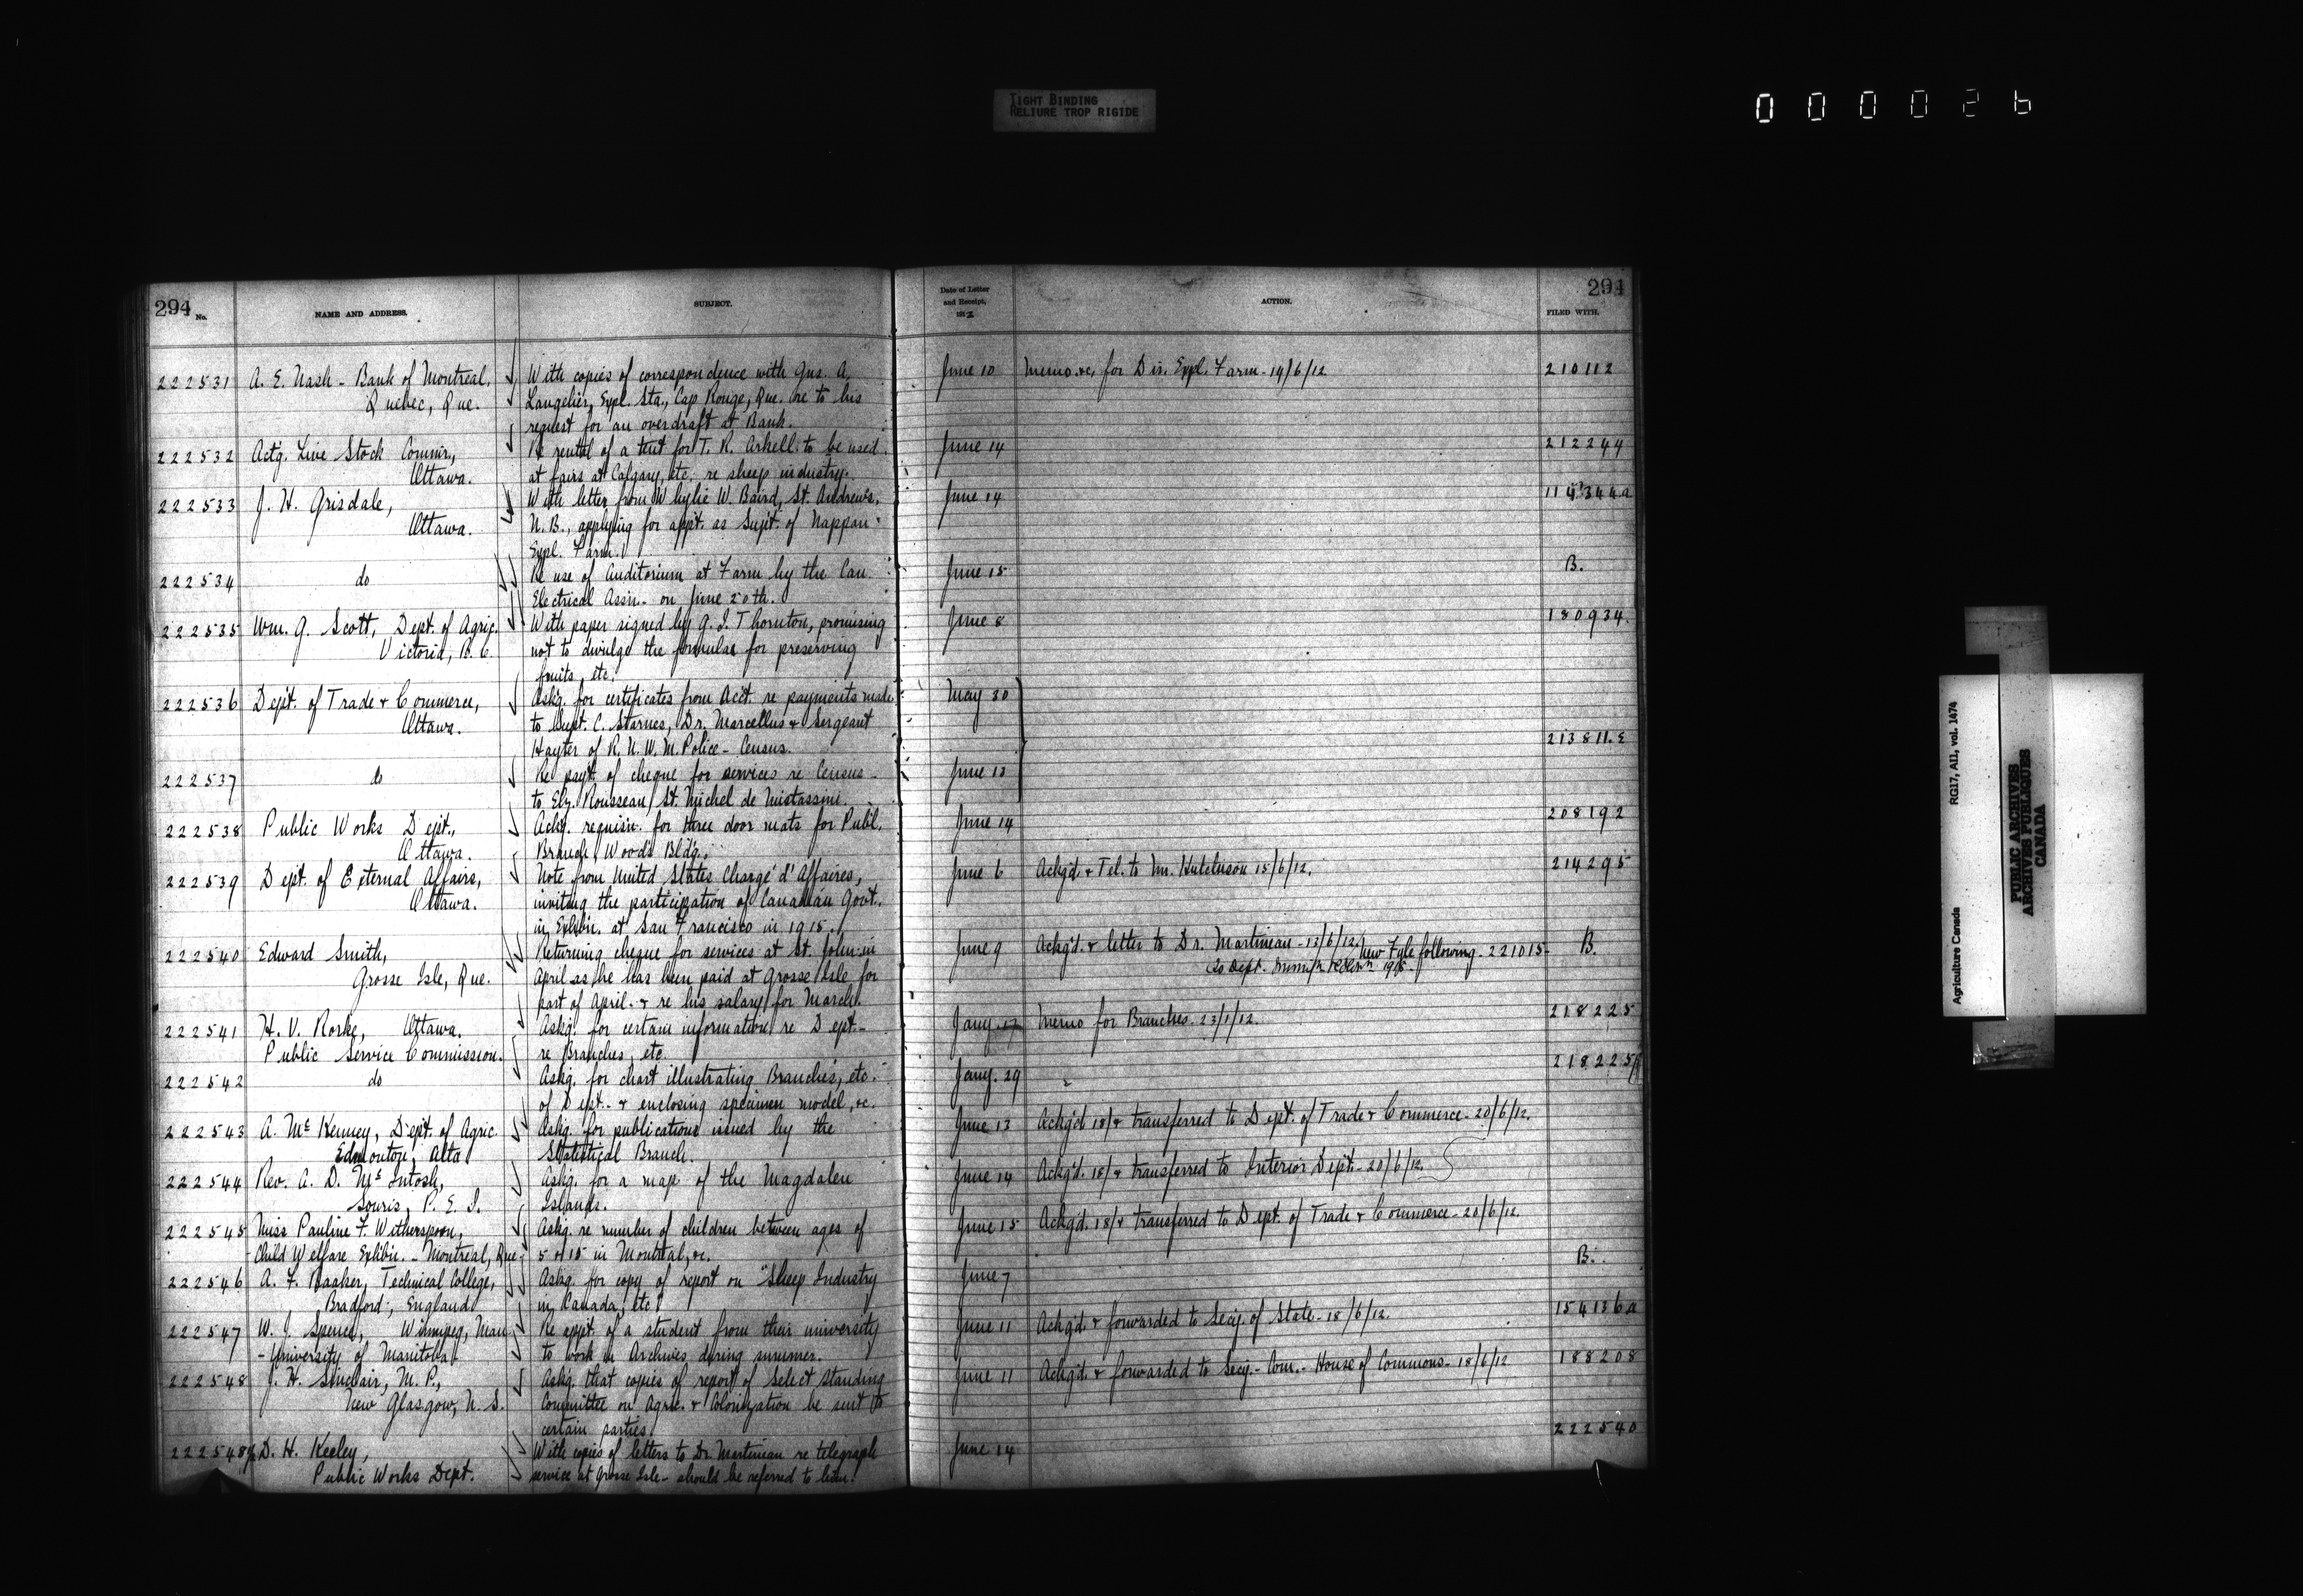 TIGHT BINDING
RELIURE TROP RIGIDE
000026
294
No.
NAME AND ADDRESS.
SUBJECT.
222531 A. E. Nash - Bank of Montreal, With copies of correspondence with Gus. A.
Quebec, Que. Langelier, Expl. Sta., Cap Rouge, Que. re to his
request for an overdraft at Bank.
222532 Actg. Live Stock Commr., Re rental of a tent for T. R. Arkell to be used
Ottawa. at fairs at Calgary, etc. re sheep industry.
222533 J. H. Grisdale, With letter from Whylie W. Baird, St. Andrews,
Ottawa. N. B., applying for appt. as Supt. of Nappan
Expl. Farm.
222534 do Re use of Auditorium at Farm by the Can
Electrical Assn. on June 20th.
222535 Wm. G. Scott, Dept. of Agric. With paper signed by G. I. Thornton, promising
Victoria, B. C. not to divulge the formulae for preserving
fruits, etc.
222536 Dept. of Trade & Commerce, Askg. for certificates from Acct. re payments made
Ottawa. to Supt. C. Starnes, Dr. Marcellus & Sergeant
Hayter of R. N. W. M. Police - Census.
222537 do Re payt. of cheque for services re Census -
to Elz. Rousseau, St. Michel de Mistassini.
222538 Public Works Dept., Ackg. requisn. for three door mats for Publ.
Ottawa. Branch, Woods Bldg.
222539 Dept. of External Affairs, Note from United States Chargé d'Affaires,
Ottawa. inviting the participation of Canadian Govt.
in Exhibn. at San Francisco in 1915.
222540 Edward Smith, Returning cheque for services at St. John in
Grosse Isle, Que. April as he has been paid at Grosse Isle for
part of April. & re his salary for March.
222541 H. V. Rorke, Ottawa. Askg. for certain information re Dept -
Public Service Commission. re Branches, etc.
222542 do Askg. for chart illustrating Branches, etc.
of Dept. & enclosing specimen model, &c.
222543 A. McKenney, Dept. of Agric. Askg. for publications issued by the
Edmonton, Alta Statistical Branch.
222544 Rev. A. D. McIntosh, Askg. for a map of the Magdalen
Souris, P. E. I. Islands.
222545 Miss Pauline F. Witherspoon, Askg. re number of children between ages of
Child Welfare Exhibn. - Montreal, Que. 5 & 15 in Montreal, &c.
222546 A. F. Baaker, Technical College, Askg. for copy of report on "Sheep Industry
Bradford, England in Canada, etc.
222547 W. J. Spence, Winnipeg, Man Re appt. of a student from their university
- University of Manitoba to work in Archives during summer.
222548 J. H. Sinclair, M. P., Askg. that copies of report of Select Standing
New Glasgow, N. S. Committee on Agric. & Colonization be sent to
certain parties
222548½ D. H. Keeley, With copies of letters to Dr. Martineau re telegraph
Public Works Dept. service at Grosse Isle - should be referred to him.
Date of Letter
and Receipt,
1912
ACTION.
294
FILED WITH.
June 10 Memo. &c. for Dir. Expl. Farm - 14/6/12 210112
June 14 212244
June 14 114344a
June 15 B.
June 8 180934.
May 30
213811.E
June 13
June 14 208192
June 6 Ackg'd. & Tel. to Mr. Hutchison 15/6/12. 214295
June 9 Ackg'd. & letter to Dr. Martineau - 13/6/12. New Fyle following. 221015 - B.
Jany. 17 Memo for Branches - 23/1/12. 218225
Jany. 29 " 218225
June 13 Ackg'd 18/ & transferred to Dept. of Trade & Commerce - 20/6/12.
June 14 Ackg'd. 18/ & transferred to Interior Dept. - 20/6/12.
June 15 Ackg'd. 18/ & transferred to Dept. of Trade & Commerce - 20/6/12.
June 7 B.
June 11 Ackg'd & forwarded to Secy. of State - 18/6/12. 154136a
June 11 Ackg'd. & forwarded to Secy. - Com. - House of Commons - 18/6/12 188208
June 14 222540
Agriculture Canada RG17, AII, vol. 1474
PUBLIC ARCHIVES
ARCHIVES PUBLIQUES
CANADA